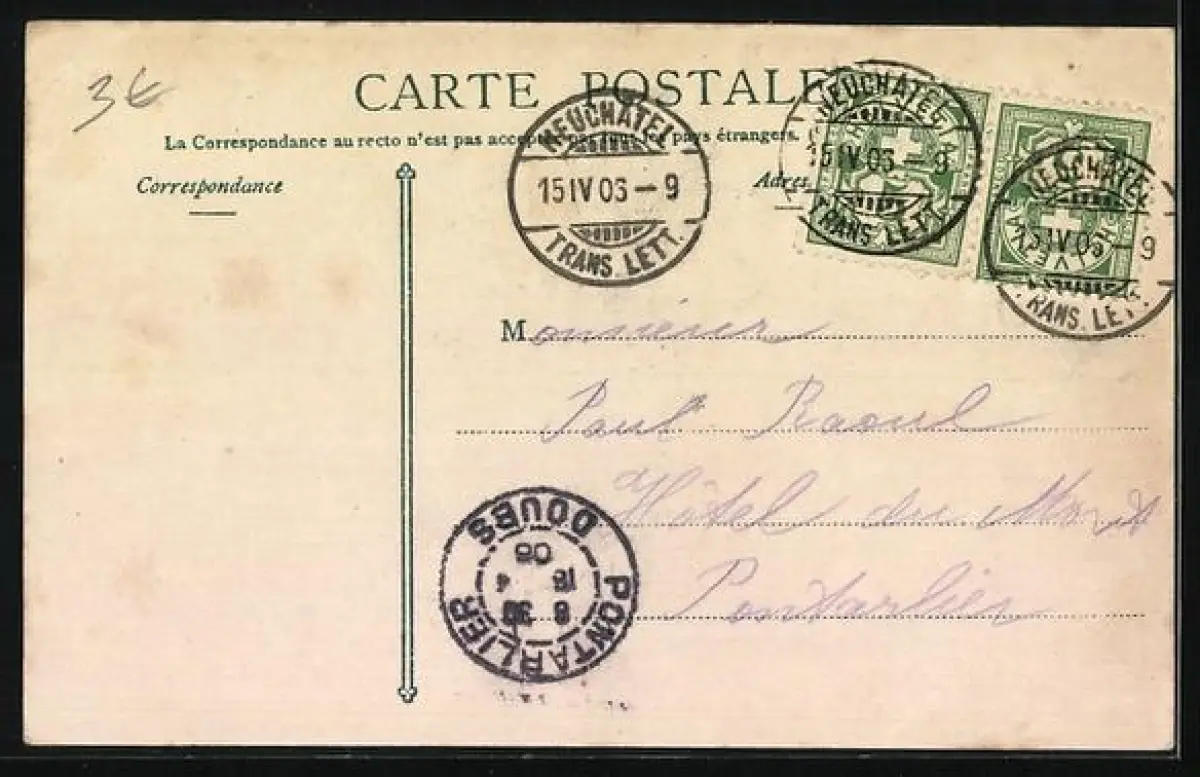 3€
CARTE POSTALE
La Correspondance au recto n'est pas acceptée par tous les pays étrangers.
Correspondance
Adres
NEUCHATEL
15 IV 06 – 9
TRANS. LETT.
NEUCHATEL
15 IV 06 – 9
TRANS. LETT.
NEUCHATEL
15 IV 06 – 9
TRANS. LETT.
HELVETIA
Monsieur
Paul Raoul
Hôtel du
Pontarlier
PONTARLIER
DOUBS
8 30
16 4
06